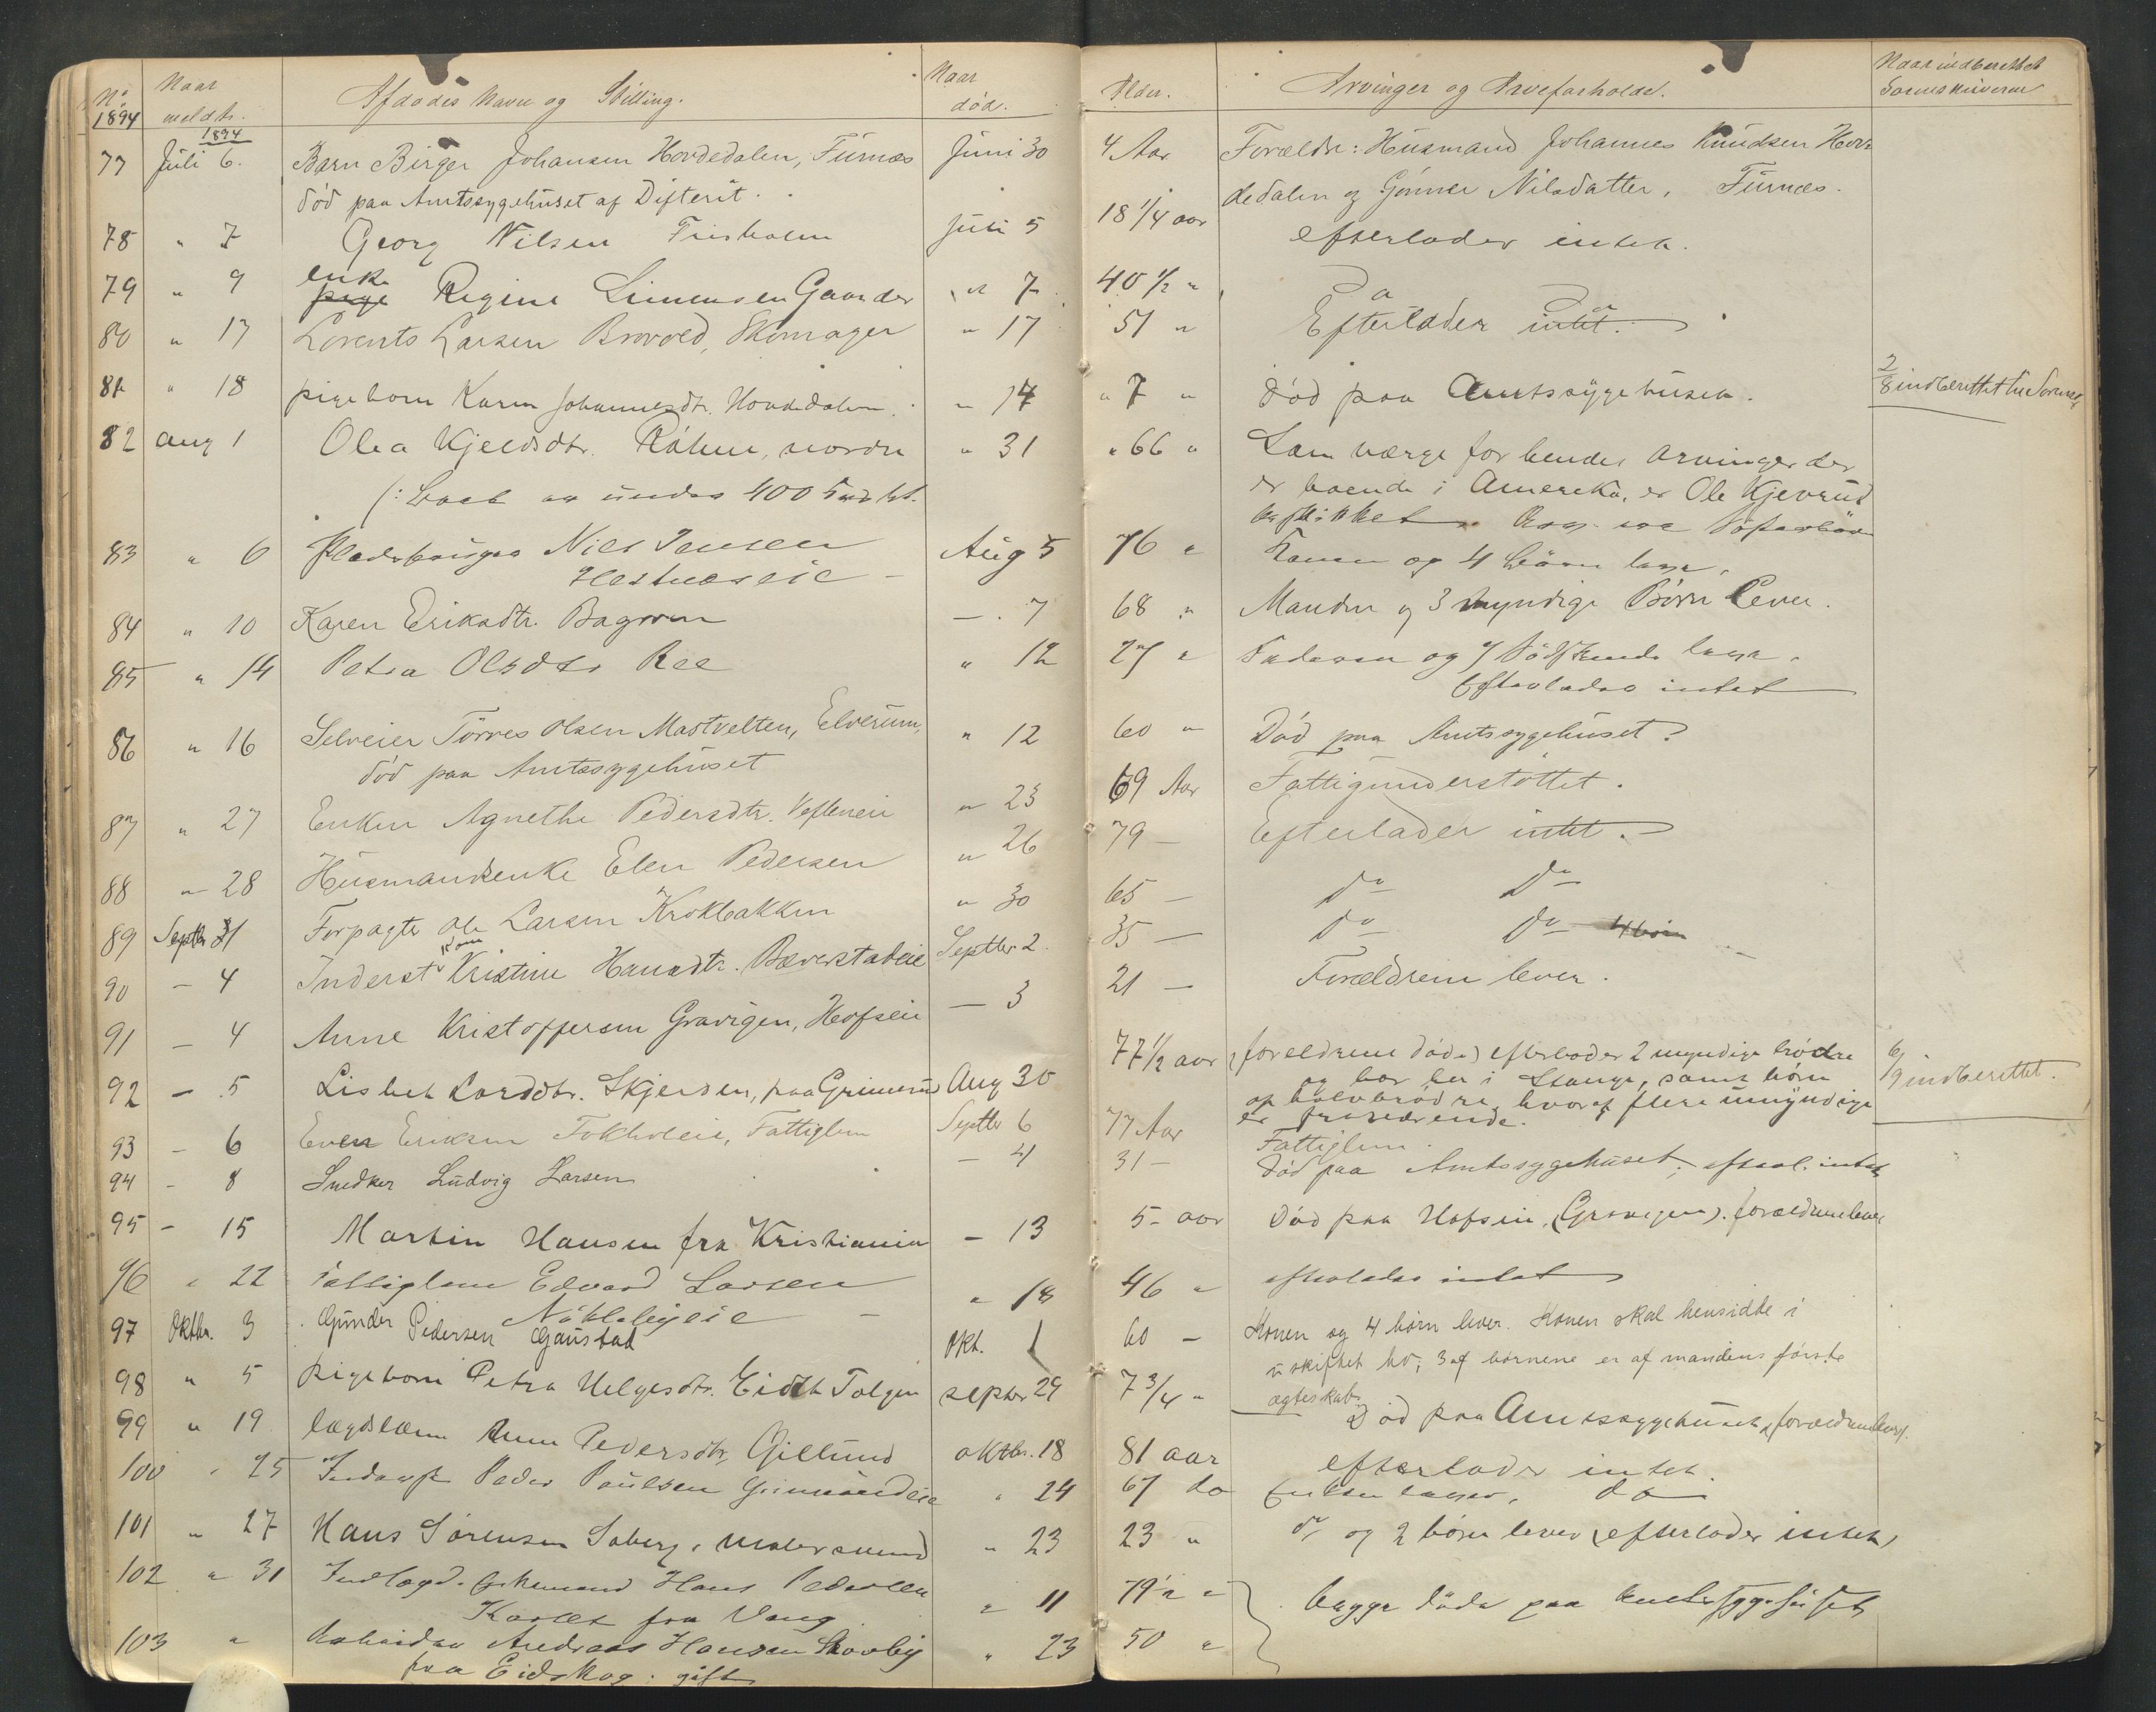 No Naar Afdødes Navn og Stilling. Naar Alder. Arvinger og Arveforholde. Naar indberettet
1894 meldt. død. Sorenskriveren
1894
77 Juli 6. Barn Birger Johansen Hovdedalen, Furnæs Juni 30 4 Aar Forældre: Husmand Johannes Knudsen Hov-
død paa Amtssygehuset af Difterit. dedalen og Gunner Nilsdatter, Furnæs.
78 " 7 Georg Nilsen Juli 5 18 1/4 aar efterlader intet.
79 " 9 enke pige Regine Simensen Gaarder " 7 40 1/2 "
80 " 17 Lorents Larsen Brovold, Skomager " 17 51 " Efterlader intet.
81 " 18 pigebarn Karen Johannesdt. Hovdedalen. " 14 " 7 " Død paa Amtssygehuset. 2/8 indberettet
82 Aug 1 Olea Kjeldsdtr. nordre " 31 " 66 " Som værge for hendes arvinger der
(: under 400 er boende i Amereka, er Ole Kjevrud
beskikket
83 " 6 Pladsbruger Nils Jensen Aug 5 76 " Konen og 4 børn lever.
Hestnæseie
84 " 10 Karen Eriksdtr. Bagroen — . 7 68 " Manden og 3 myndige Børn Lever.
85 " 14 Petra Olsdtr Ree " 12 27 " Faderen og 7 Sødskende lever.
Efterlader intet
86 " 16 Selveier Törres Olsen Mastvelten, Elverum, " 12 60 " Død paa Amtssygehuset.
død paa Amtssygehuset
87 " 27 Enken Agnethe Pedersdtr. " 23 69 Aar Fattigunderstøttet.
88 " 28 Husmandsenke Elen Pedersen " 26 79 — Efterlader intet.
89 Septbr 1 Forpagter Ole Larsen Krokbakken " 30 65 — do do
90 — 4 Inderst Kone Kristine Hansdtr. Bæverstadeie Septbr. 2 35 — do do 4 børn
91 — 4 Anne Kristoffersen Gravigen, Hofseie — 3 21 — Forældrene lever.
92 — 5 Lisbet Larsdtr. Skjersen, paa Grimerud Aug 30 77 1/2 aar (foreldrene døde) efterlader 2 myndige brødre 6/9 indberettet.
og bor her i Stange, samt børn
af halvbrødre, hvoraf flere umyndige
er fraværende.
93 — 6 Even Eriksen Fokholeie, Fattiglem Septbr 6 77 Aar Fattiglem.
94 — 8 Snedker Ludvig Larsen — 4 31 — Død paa Amtssygehuset, efterl. intet
95 — 15 Martin Hansen fra Kristiania — 13 5 - aar Død paa Hofseie, (Gravigen). forældrene lever
96 " 22 Fattiglem Edvard Larsen " 18 46 " efterlader intet
Nökklebyeie
97 Oktbr. 3 Gunder Pedersen Gaustad Okt. 1 60 — Konen og 4 børn lever. Konen skal hensidde i
uskiftet bo; 3 af børnene er af mandens første
ægteskab.
98 " 5 pigebarn Petra Helgesdtr. Eidet Tolgen septbr 29 7 3/4 " Død paa Amtssygehuset,
99 " 19 lægdslem Pedersdtr, Gillund oktbr. 18 81 aar efterlader intet.
100 " 25 Inderst Peder Paulsen Grimerudeie " 24 67 do Enken lever, do
101 " 27 Hans Sörensen malersvend " 23 23 " do og 2 børn lever (efterlader intet)
102 " 31 Indlagd. Hans Pedersen " 11 79 1/2 " begge døde paa Amtssygehuset
fra Vang
103 " Arbeider Andreas Hansen Skovby " 23 50 "
fra Eidskog; gift